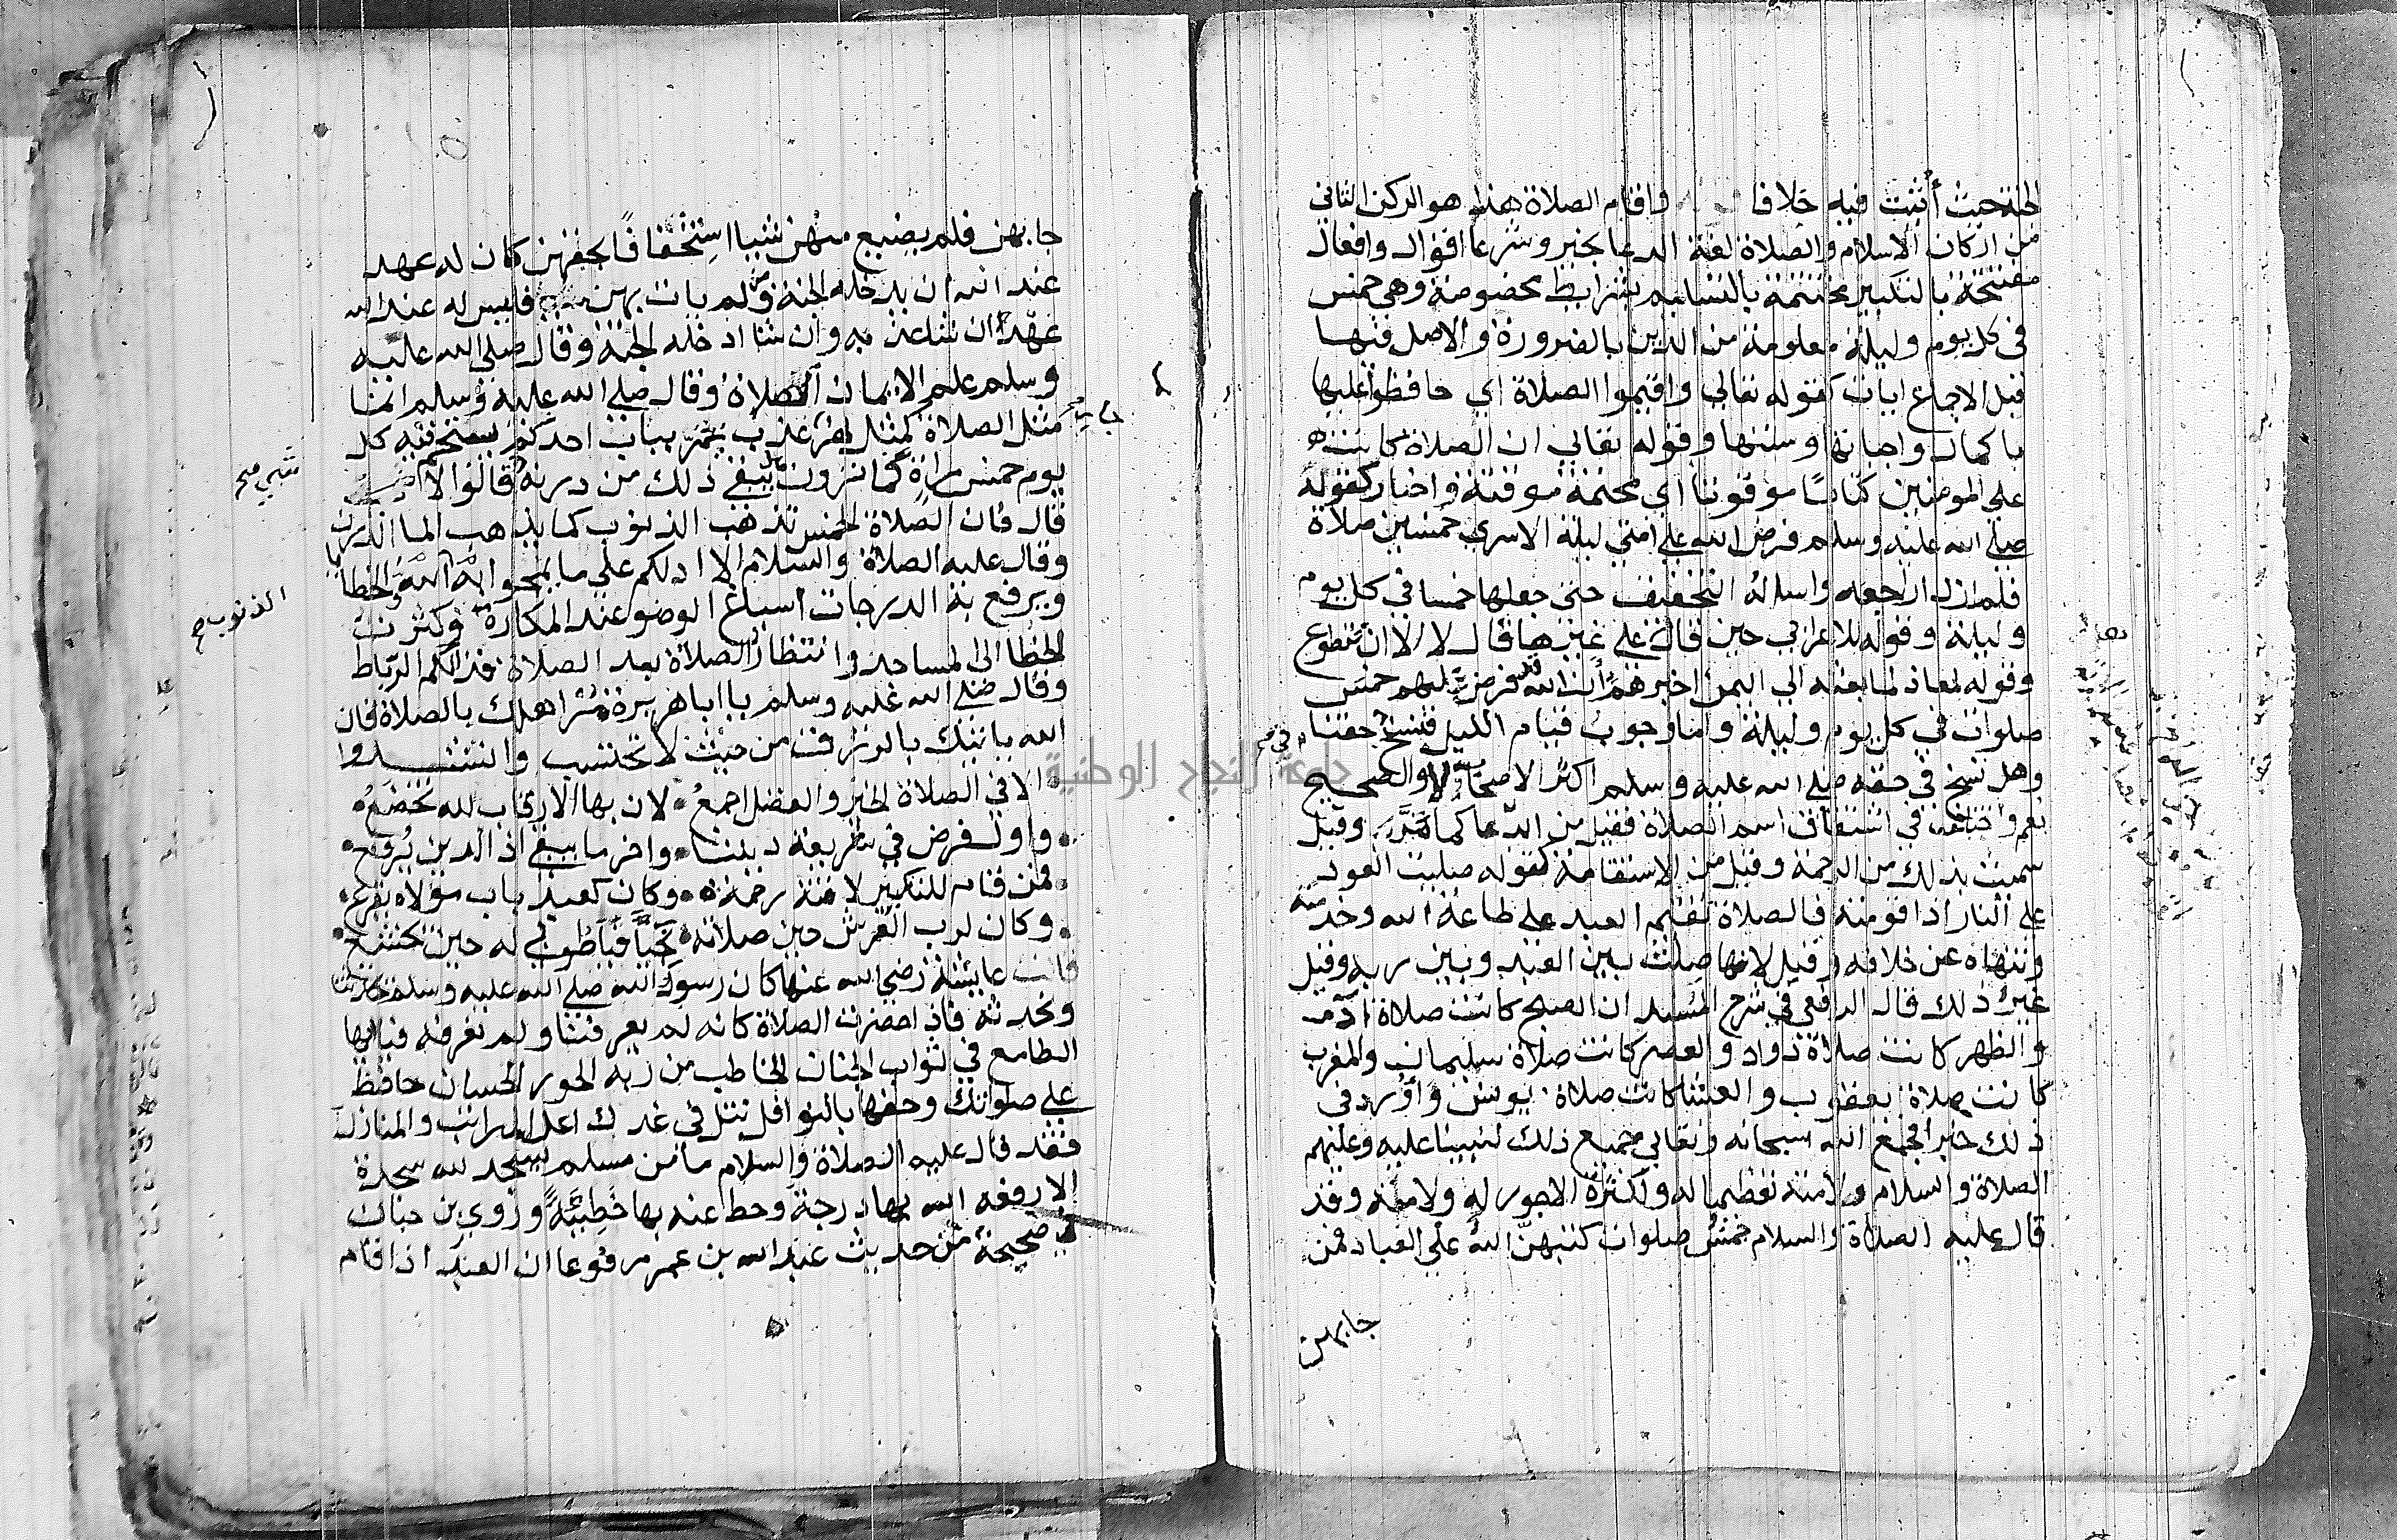 الجنة حيث أثبت فيه خلافا واقام الصلاة هذا هو الركن الثاني
من اركان الاسلام والصلاة لغة الدعا بخير وشرعا اقوال وافعال
مفتتحة بالتكبير مختتمة بالتسليم بشرايط مخصوصة وهي خمس
في كل يوم وليلة معلومة من الدين بالضرورة والاصل فيها
قبل الاجماع ايات كقوله تعالي واقيموا الصلاة اي حافظوا عليها
باكمال واجباتها وسننها وقوله تعالي ان الصلاة كانت
علي المومنين كتابًا موقوتا اي محتمة موقتة واخبار كقوله
صلي الله عليه وسلم فرض الله علي امتي ليلة الاسري خمسين صلاة
فلم ازل اراجعه واساله التخفيف حتي جعلها خمسا في كل يوم
وليلة وقوله للاعرابي حين قال هل علي غيرها قال لا الا ان تطوع
وقوله لمعاذ لما بعثه الي اليمن اخبرهم ان الله قد فرض عليهم خمس
صلوات في كل يوم وليلة واما وجوب قيام الليل فنسخ حقنا
في صح
وهل نسخ في حقه صلي الله عليه وسلم اكثر الاصحاب لا والصحيح
نعم واختلف في اشتقاق اسم الصلاة فقيل من الدعا كما مر وقيل
سميت بذلك من الرحمة وقيل من الاستقامة كقوله صليت العود
علي النار اذا قومته فالصلاة تقيم العبد علي طاعة الله وخدمته
وتنهاه عن خلافه وقيل لانها صلة بين العبد وبين ربه وقيل
غير ذلك قال الرافعي في شرح المسند ان الصبح كانت صلاة ادم
والظهر كانت صلاة داود والعصر كانت صلاة سليمان والمغرب
كانت صلاة يعقوب والعشا كانت صلاة يونس واورد في
ذلك خبرا فجمع الله سبحانه وتعالي جميع ذلك لنبينا عليه وعليهم
الصلاة والسلام ولامته تعظيما له ولكثرة الاجور له ولامته وقد
قال عليه الصلاة والسلام خمس صلوات كتبهن الله علي العباد فمن
جابهن
جابهن فلم يضيع منهن شيا استخفافًا بحقهن كان له عهد
عند الله ان يدخله الجنة ومن لم يات بهن فليس له عند الله
عهد ان شا عذبه وان شا ادخله الجنة وقال صلي الله عليه
وسلم علم الايمان الصلاة وقال صلي الله عليه وسلم انما
مثل الصلاة كمثل نهر عذب يمر بباب احدكم يقتحم فيه كل
يوم خمس مرات فما ترون يبقي ذلك من درنه قالوا لا
شي صح
قال فان الصلاة الخمس تذهب الذنوب كما يذهب الما الدرن
وقال عليه الصلاة والسلام الا ادلكم علي ما يمحوا الله به الخطايا
الذنوب صح
ويرفع به الدرجات اسباغ الوضو عند المكاره وكثرت
الخطا الي المساجد وانتظار الصلاة بعد الصلاة فذلكم الرباط
وقال صلي الله عليه وسلم يا ابا هريرة مر اهلك بالصلاة فان
الله ياتيك بالرزق من حيث لا تحتسب وانشدوا
الا في الصلاة الخير والفضل اجمع لان بها الارقاب لله تخضع
واول فرض في شريعة ديننا واخر ما يبقي اذ الدين يرفع
فمن قام للتكبير لاقته رحمة وكان كعبد باب مولاه يقرع
وكان لرب العرش حين صلاته نجيًا فيا طوبي له حين يخشع
قالت عايشة رضي الله عنها كان رسول الله صلي الله عليه وسلم يحدثنا
ونحدثه فاذا حضرت الصلاة كانه لم يعرفنا ولم نعرفه فيا ايها
الطامع في ثواب الجنان الخاطب من ربه الحور الحسان حافظ
علي صلواتك وحفها بالنوافل تنل في غد بك اعلي المراتب والمنازل
فقد قال عليه الصلاة والسلام ما من مسلم يسجد لله سجدة
الا رفعه الله بها درجة وحط عنه بها خطيئة وروي بن حبان
في صحيحه من حديث عبد الله بن عمر مرفوعا ان العبد اذا قام
جامعة النجاح الوطنية